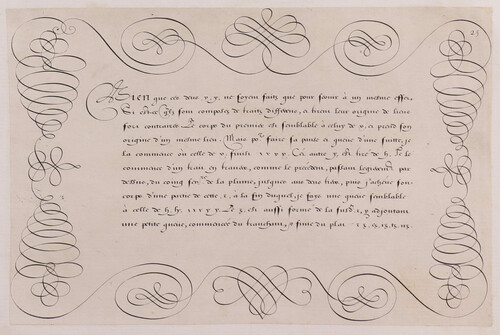 25
Bien que ces deux y. y. ne soyent faits que pour servir à un mesme effet,
Si est-ce qu'ilz sont composez de traits differens, & tirent leur origine de lieux
fort contraires. Le corps du premier est semblable à celuy de x, et prend son
origine d'un mesme lieu. Mais pour faire sa pante et queue d'une suitte, je
la commence où celle de x finist. Cet autre y. est tiré de h. Je le
commence d'un trait en travers, comme le precedent, passant
dessus, du coing de la plume, jusques aux deux puis j'acheve son
corps d'une partie de cette la fin duquel, je fays une queue semblable
à celle de h. Le z. est aussi formé de la y adjoutant
une petite queue, commencée du tranchant, & finie du plat. z. z. z. z.